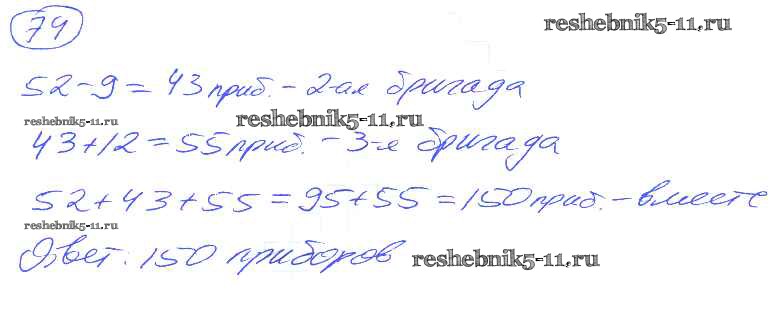 79 reshebnik5-11.ru
52-9=43 приб. - 2-ая бригада
reshebnik5-11.ru reshebnik5-11.ru
43+12=55 приб. - 3-я бригада
52+43+55=95+55=150 приб. - вместе
reshebnik5-11.ru
Ответ: 150 приборов reshebnik5-11.ru